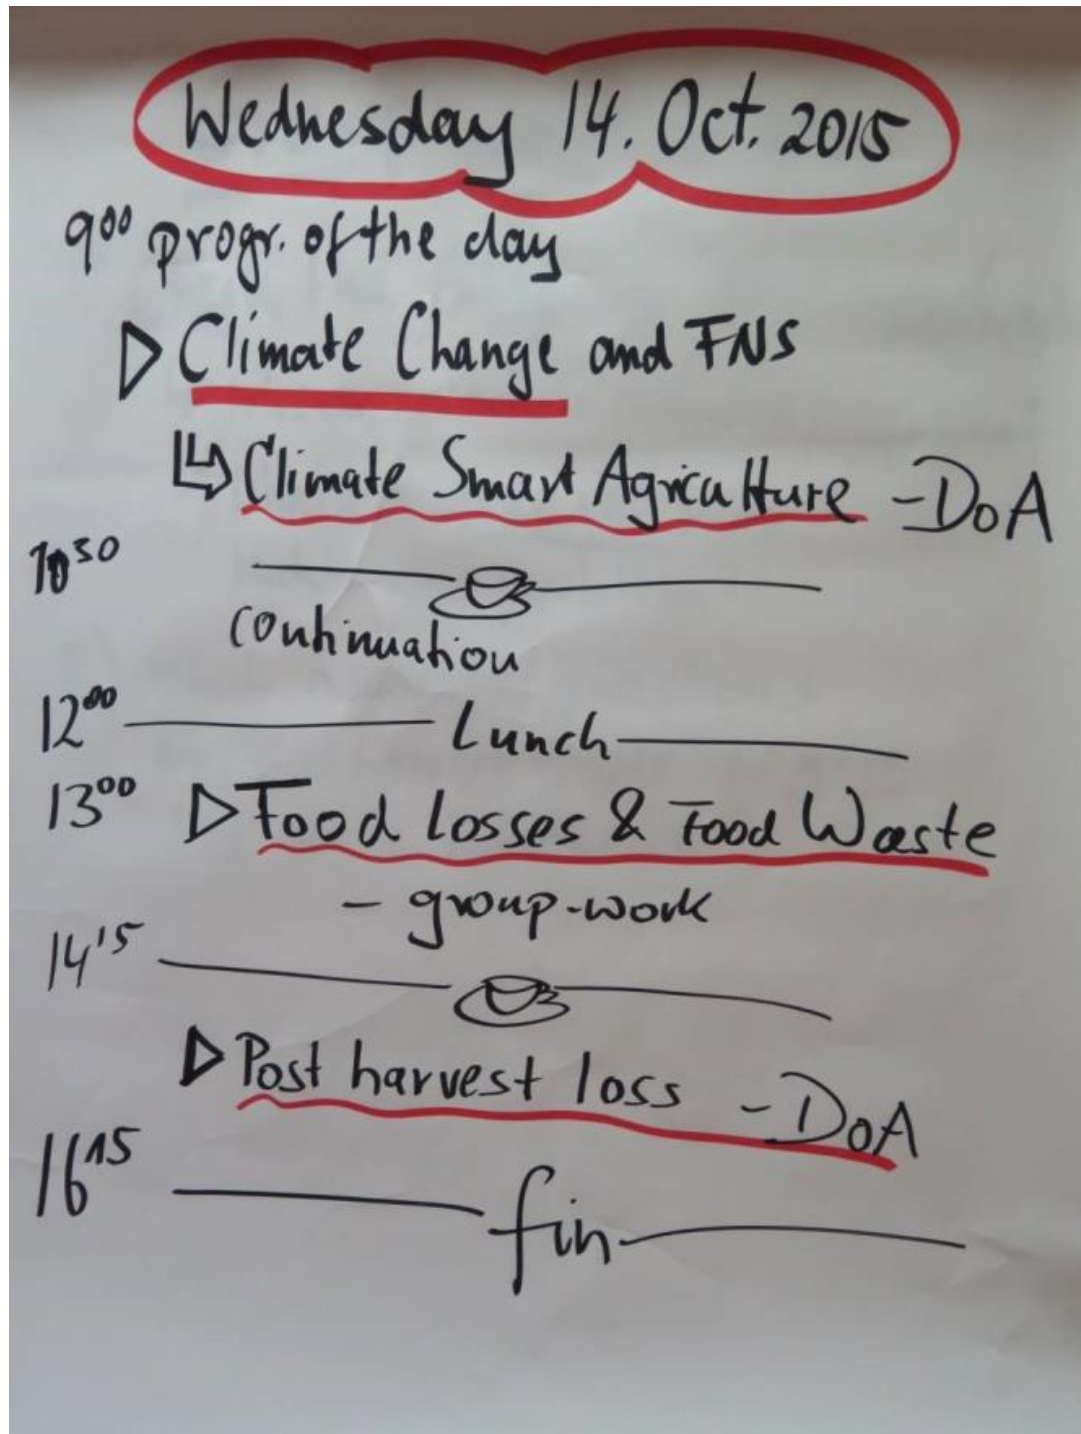 Wednesday 14. Oct. 2015
9⁰⁰ progr. of the day
Climate Change and FNS
Climate Smart Agriculture - DoA
10³⁰
continuation
12⁰⁰ Lunch
13⁰⁰ Food Losses & Food Waste
- group-work
14¹⁵
Post harvest loss - DoA
16¹⁵
fin